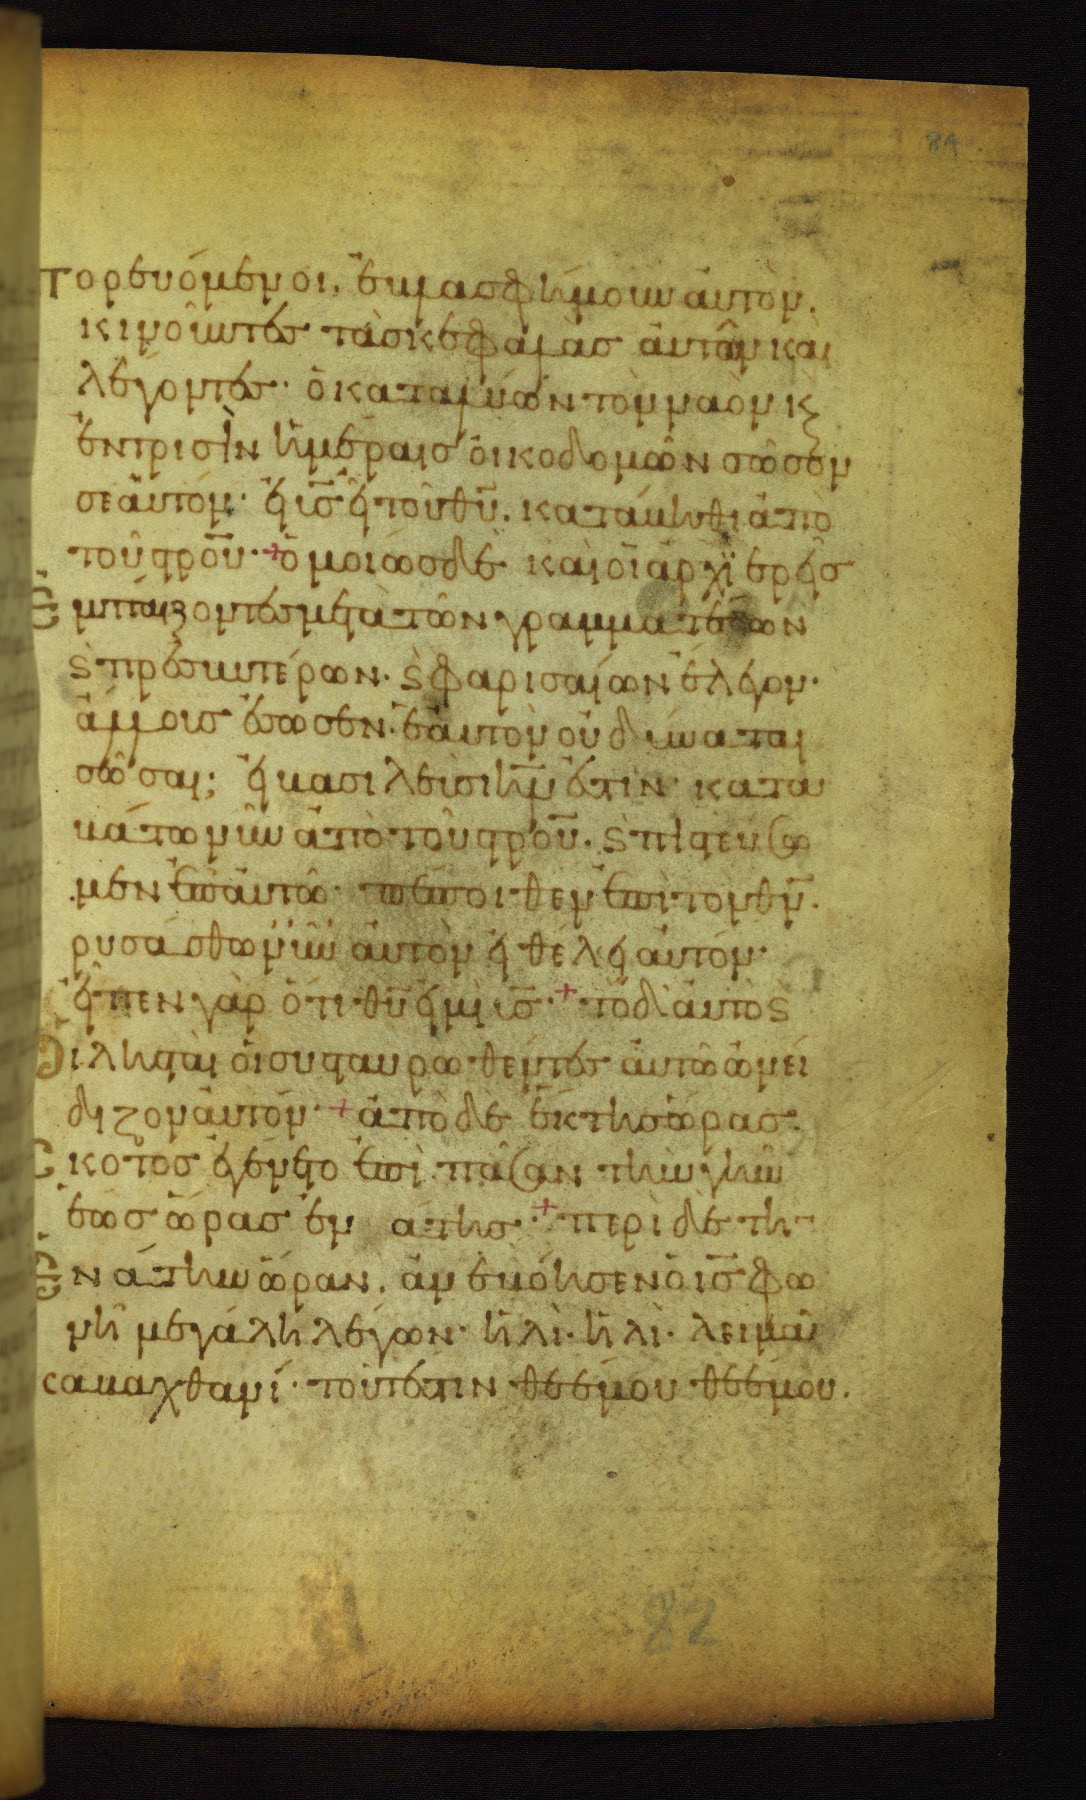 84
πορευόμενοι. ἐβλασφήμουν ἀυτὸν.
κινοῦντες τὰσ κεφαλὰσ ἀυτῶν και
λέγοντεσ· ὁ καταλύων τὸν ναὸν κ
ἐν τρισὶν ἡμέραισ οἰκοδομῶν σῶσον
σεἀυτόν· εἰ ῡσ εἶ τοῦ θῡ. κατάβηθι ἀπὸ
τοῦ σ̅ρο̅υ̅· + ὁμοίωσ δὲ καὶ οἱ ἀρχϊερεῖσ
ἐμπαίζοντεσ μετὰ τῶν γραμματέων
ϛ πρεσβυτέρων· ϛ φαρισαίων ἔλεγον·
ἄλλουσ ἔσωσεν· ἑἀυτὸν οὐ δύναται
σῶσαι; εἰ βασιλεὺσ ιη̅λ ἐστιν· κατα
βάτω νῦν ἀπὸ τοῦ σ̅ρο̅υ̅. ϛ πιστεύσω
μεν ἐπ' ἀυτῶ· πέποιθεν ἐπὶ τὸν θν̅.
ρυσάσθω νῦν ἀυτὸν εἰ θέλει ἀυτόν·
εἶπεν γὰρ ὅτι θῡ εἰμι ῡσ· + τὸ δ' ἀυτὸ ϛ
οἱ λησταὶ ὁι συσταυρωθέντεσ ἀυτῶ ὠνεί
διζον ἀυτόν· + ἀπὸ δὲ ἕκτησ ὥρασ·
Σκοτοσ ἐγένετο ἐπὶ πᾶσαν τὴν γῆν
ἕωσ ὥρασ ἐν ατησ· + περὶ δὲ τὴ
ἐνάτην ὥραν. ἀνεβόησεν ὁ ισ̅ φω
νῆ μεγάλη λέγων· ἠλὶ· ἠλὶ· λειμᾶ
σαβαχθανί· τοῦτέστιν θεέ μου θεέ μου.
82